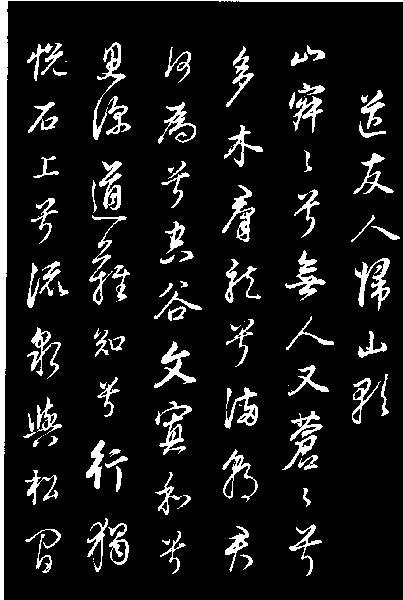 送友人歸山歌
山寂々兮無人又蒼々兮
多木羣龍兮滿朝君
何為兮空谷文寡和兮
思深道難知兮行獨
悅石上兮流泉與松間